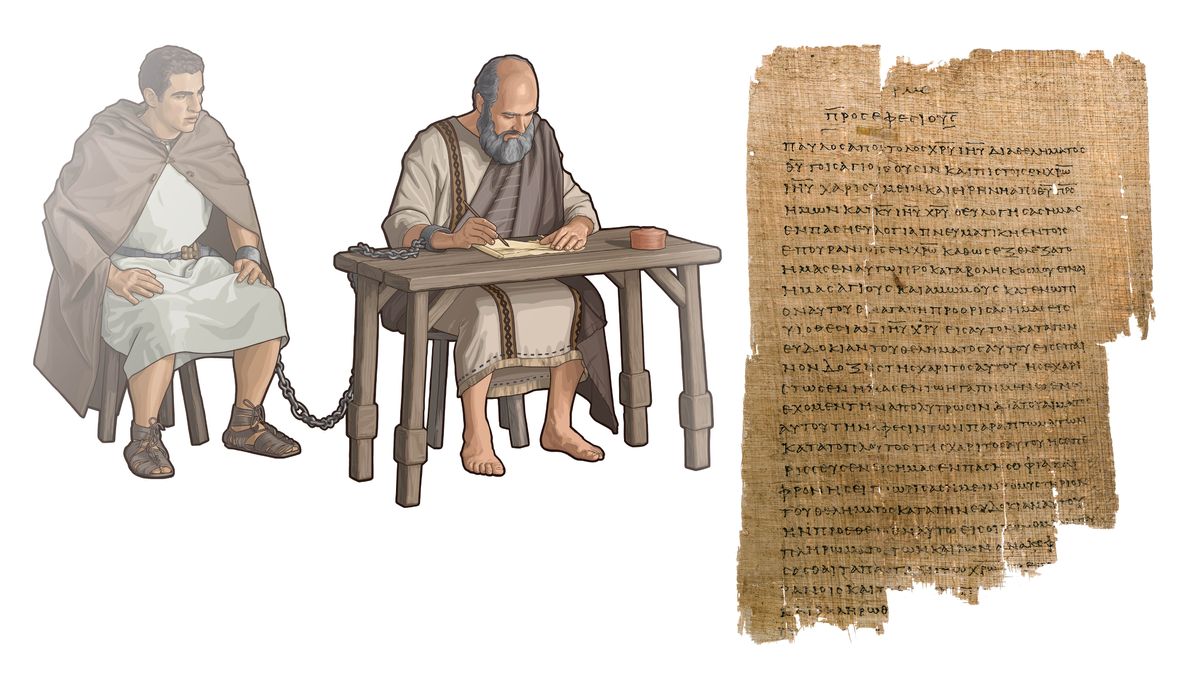 ρμϛ
ΠΡΟϹΕΦΕϹΙΟΥϹ
ΠΑΥΛΟϹΑΠΟϹΤΟΛΟϹΧΡΥ ΙΗΥ ΔΙΑΘΕΛΗΜΑΤΟϹ
ΘΥ ΤΟΙϹΑΓΙΟΙϹΟΥϹΙΝ ΚΑΙΠΙϹΤΟΙϹΕΝΧΡΩ
ΙΗΥ ΧΑΡΙϹΥΜΕΙΝΚΑΙΕΙΡΗΝΗΑΠΟΘΥ ΠΡϹ
ΗΜΩΝ ΚΑΙΚΥ ΙΗΥ ΧΡΥ ΟΕΥΛΟΓΗϹΑϹΗΜΑϹ
ΕΝΠΑϹΗΕΥΛΟΓΙΑΠΝΕΥΜΑΤΙΚΗΕΝΤΟΙϹ
ΕΠΟΥΡΑΝΙΟΙϹΕΝΧΡΩ ΚΑΘΩϹΕΞΕΛΕΞΑΤΟ
ΗΜΑϹΕΝΑΥΤΩΠΡΟΚΑΤΑΒΟΛΗϹΚΟϹΜΟΥΕΙΝΑΙ
ΗΜΑϹΑΓΙΟΥϹΚΑΙΑΜΩΜΟΥϹΚΑΤΕΝΩΠΙ
ΟΝΑΥΤΟΥΕΝΑΓΑΠΗΠΡΟΟΡΙϹΑϹΗΜΑϹΕΙϹ
ΥΙΟΘΕϹΙΑΝΙΗΥ ΧΡΥ ΕΙϹΑΥΤΟΝΚΑΤΑΤΗΝ
ΕΥΔΟΚΙΑΝΤΟΥΘΕΛΗΜΑΤΟϹΑΥΤΟΥΕΙϹΕΠΑΙ
ΝΟΝΔΟΞΗϹΤΗϹΧΑΡΙΤΟϹΑΥΤΟΥ ΗϹΕΧΑΡΙ
ΕΧΟΜΕΝΤΗΝΑΠΟΛΥΤΡΩϹΙΝ
ΑΥΤΟΥΤΗΝΑΦΕϹΙΝΤΩΝΠΑΡΑΠΤΩΜΑΤΩΝ
ΚΑΤΑΤΟΠΛΟΥΤΟϹΤΗϹΧΑΡΙΤΟϹΑΥΤΟΥΗϹΕΠΕ
ΡΙϹϹΕΥϹΕΝΕΙϹΗΜΑϹΕΝΠΑϹΗϹΟΦΙΑΚΑΙ
ΤΟΥΘΕΛΗΜΑΤΟϹΚΑΤΑΤΗΝΕΥΔΟΚΙΑΝΑΥΤΟΥ
ΗΝΠΡΟΕΘΕΤΟΕΝΑΥΤΩΕΙϹΟΙ